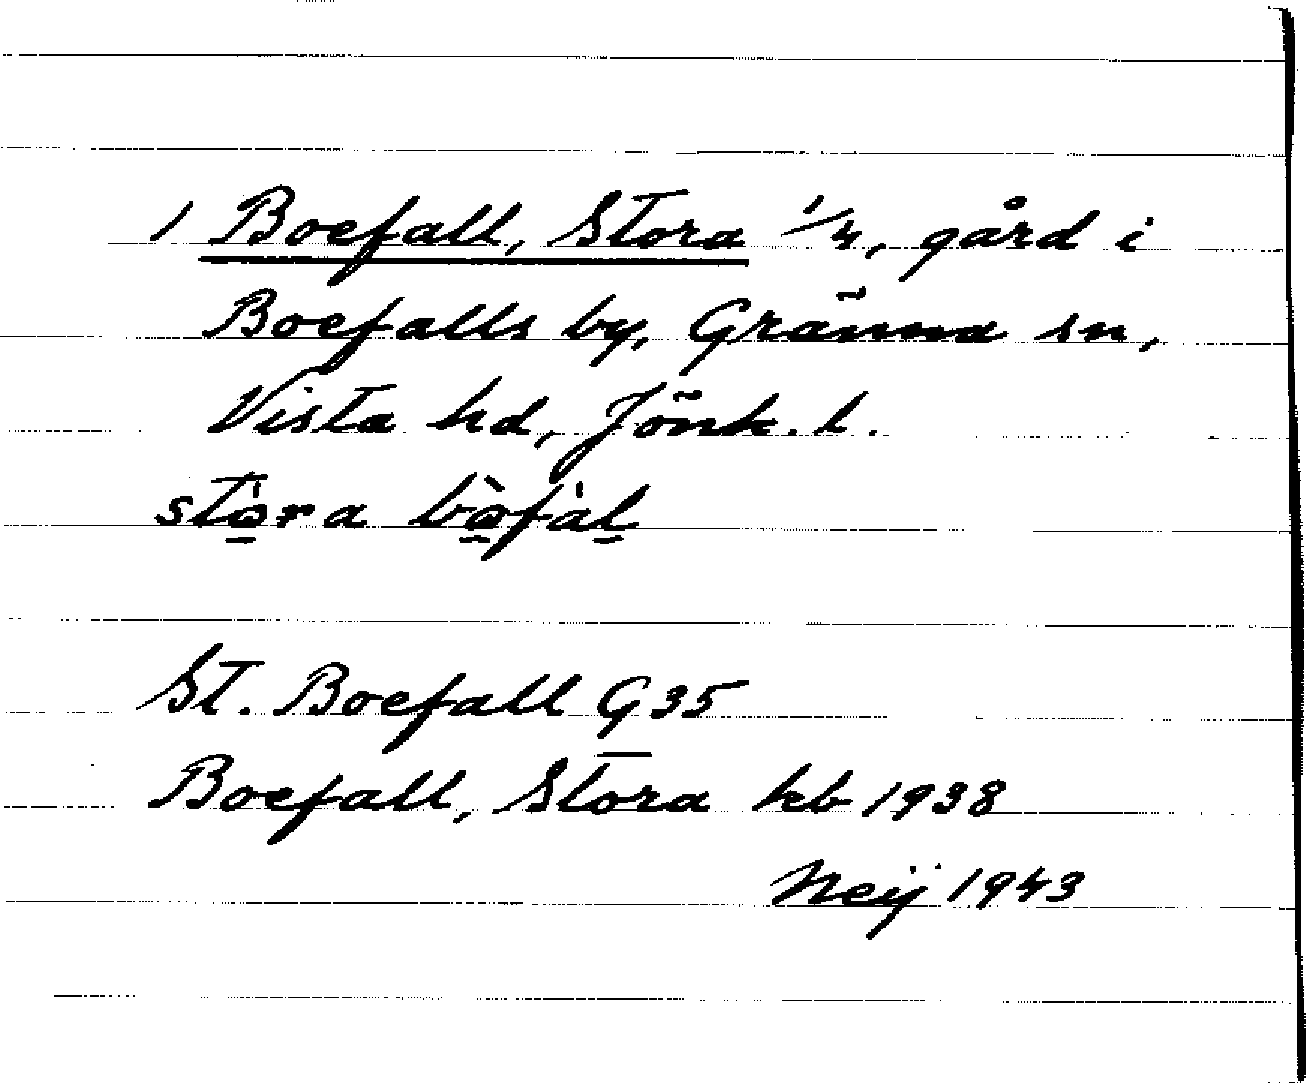 1 Boefall, Stora 1/4, gård i
Boefalls by, Gränna sn,
Vista hd, Jönk. l.
stò̱ra bò̱fàḻ
St. Boefall G35
Boefall, Stora kb 1938
Neij 1943